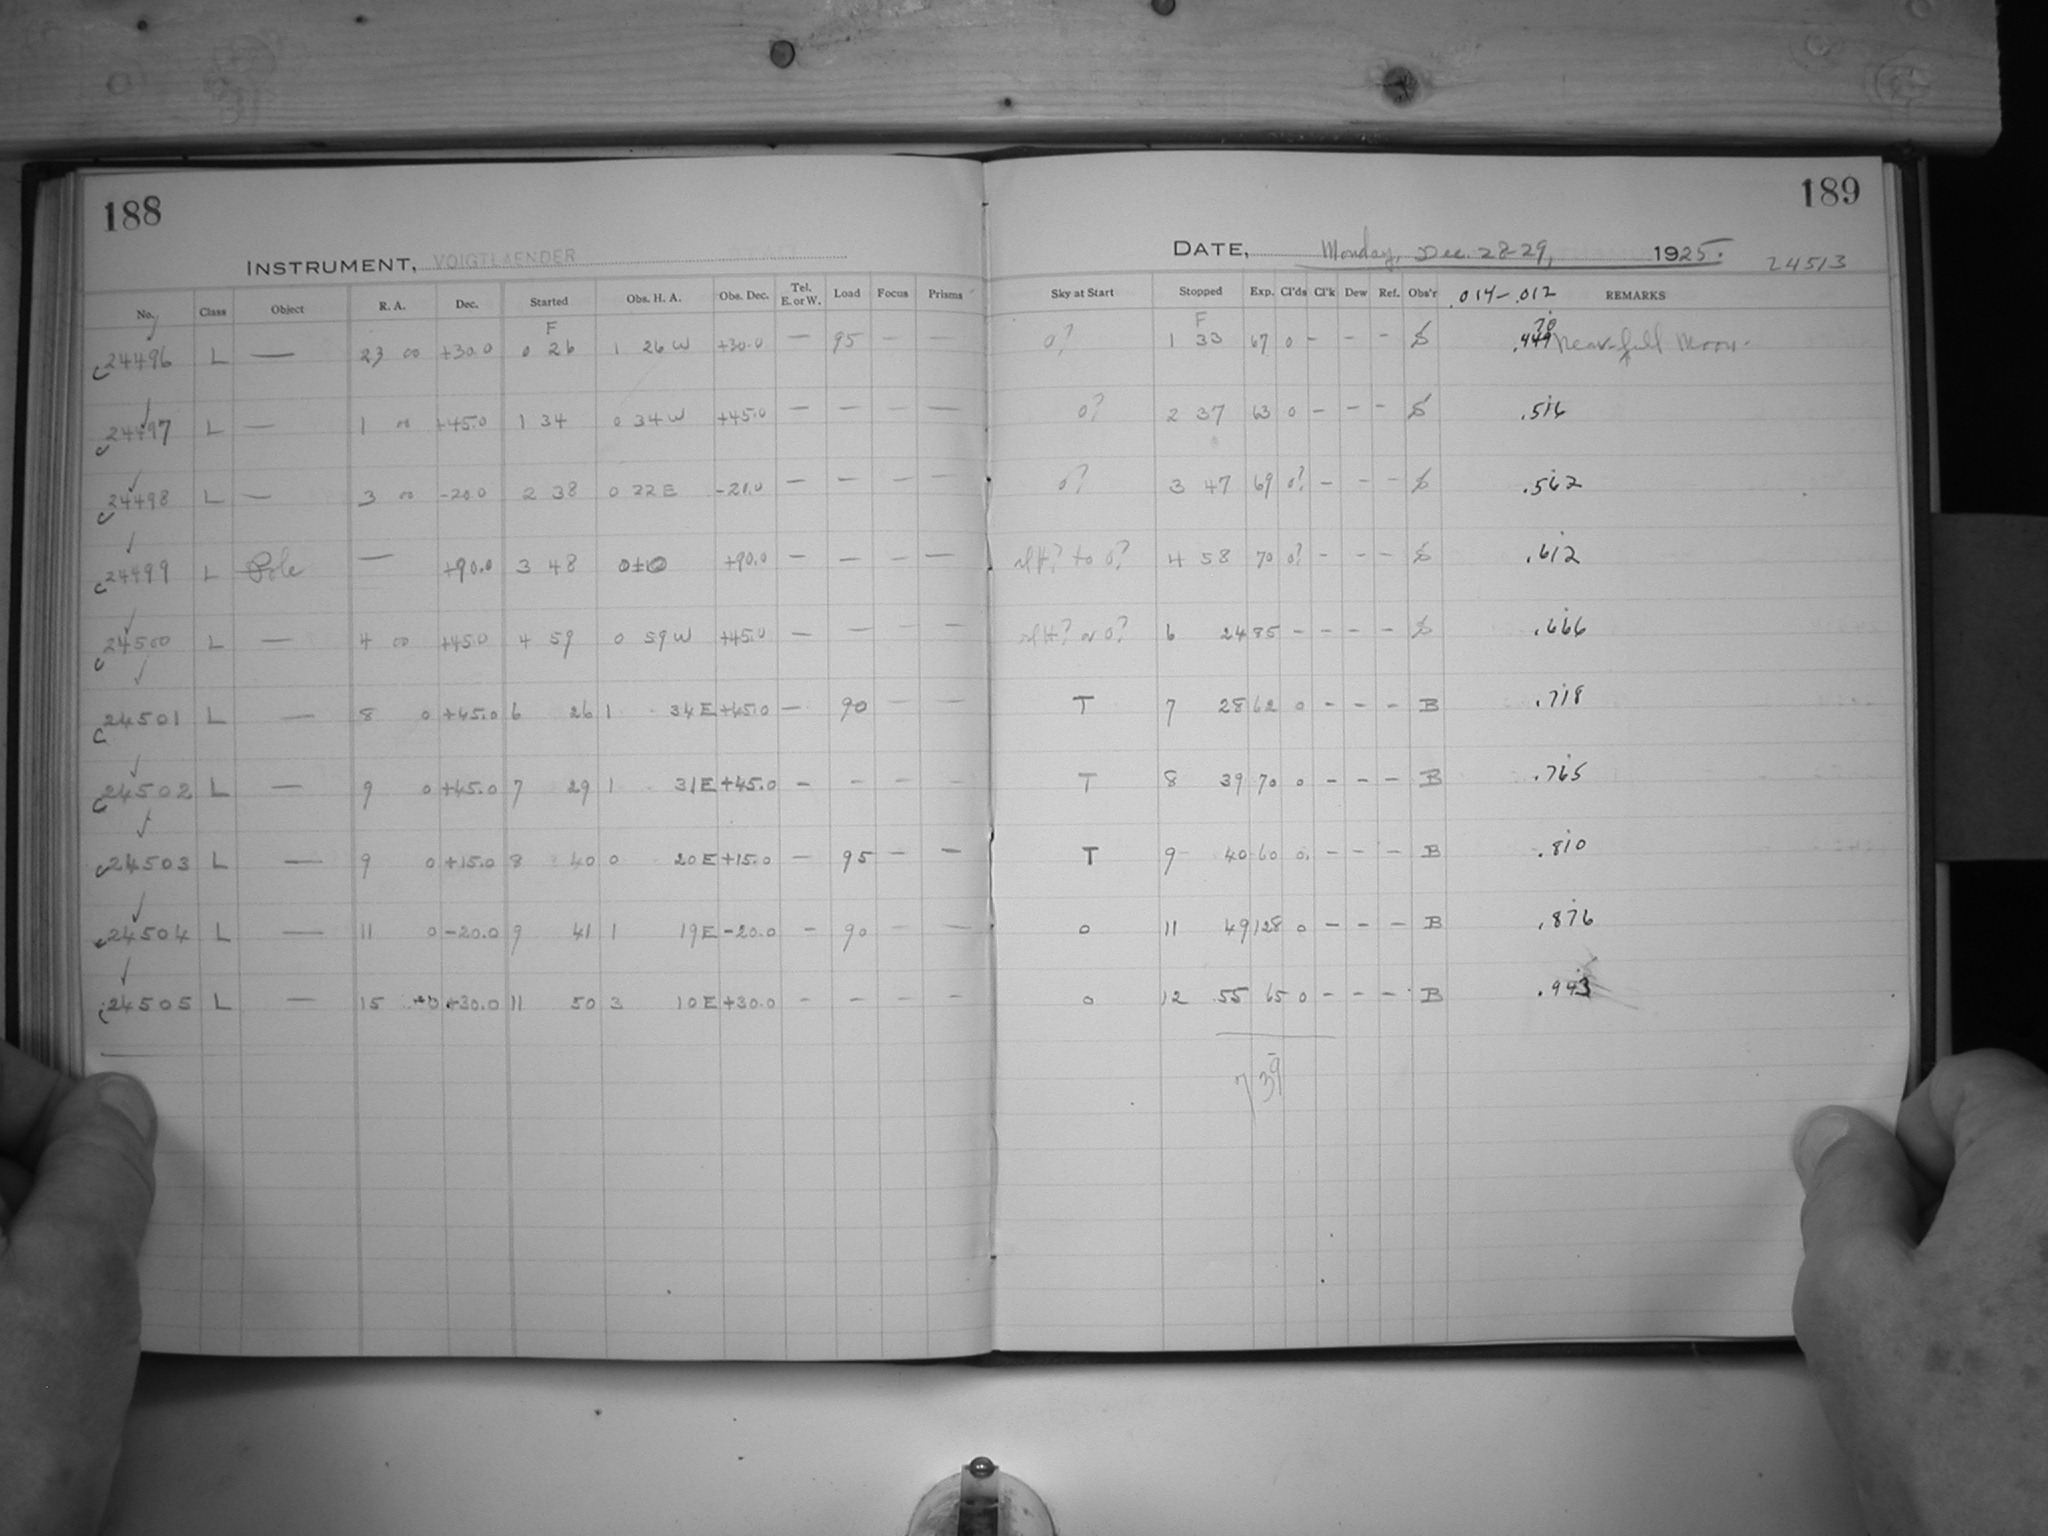 188
INSTRUMENT, VOIGTLAENDER
No. Class Object R. A. Dec. Started Obs. H. A. Obs. Dec. Tel. E. or W. Load Focus Prisms
F
24496 L — 23 00 +30.0 0 26 1 26 W +30.0 — 95 — —
24497 L — 1 00 +45.0 1 34 0 34 W +45.0 — — — —
24498 L — 3 00 -20.0 2 38 0 22 E -20.0 — — — —
24499 L Pole — +90.0 3 48 0±0 +90.0 — — — —
24500 L — 4 00 +45.0 4 59 0 59 W +45.0 — — — —
24501 L — 8 0 +45.0 6 26 1 34 E +45.0 — 90 — —
24502 L — 9 0 +45.0 7 29 1 31 E +45.0 — — — —
24503 L — 9 0 +15.0 8 40 0 20 E +15.0 — 95 — —
24504 L — 11 0 -20.0 9 41 1 19 E -20.0 — 90 — —
24505 L — 15 0 +30.0 11 50 3 10 E +30.0 — — — —
189
DATE, Monday, Dec. 28-29, 1925.
24513
Sky at Start Stopped Exp. Cl'ds Cl'k Dew Ref. Obs'r .014-.012 REMARKS
F
0? 1 33 67 0 - - - Near-full Moon.
0? 2 37 63 0 - - - .516
0? 3 47 69 0? - - - .562
to 0? 4 58 70 0? - - - .612
or 0? 6 24 85 - - - - .666
T 7 28 62 0 - - - B .718
T 8 39 70 0 - - - B .765
T 9 40 60 0 - - - B .810
0 11 49 128 0 - - - B .876
0 12 55 65 0 - - - B .943
739